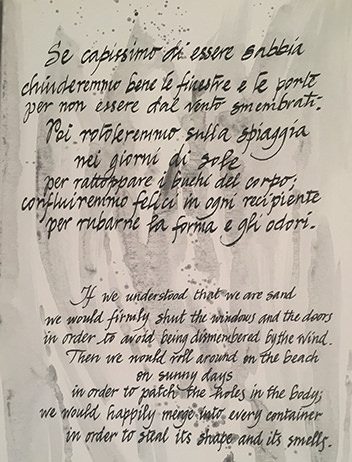 Se capissimo di essere sabbia
chiuderemmo bene le finestre e le porte
per non essere dal vento smembrati.
Poi rotoleremmo sulla spiaggia
nei giorni di sole
per rattoppare i buchi del corpo;
confluiremmo felici in ogni recipiente
per rubarne la forma e gli odori.
If we understood that we are sand
we would firmly shut the windows and the doors
in order to avoid being dismembered by the wind.
Then we would roll around on the beach
on sunny days
in order to patch the holes in the body;
we would happily merge into every container
in order to steal its shape and its smells.